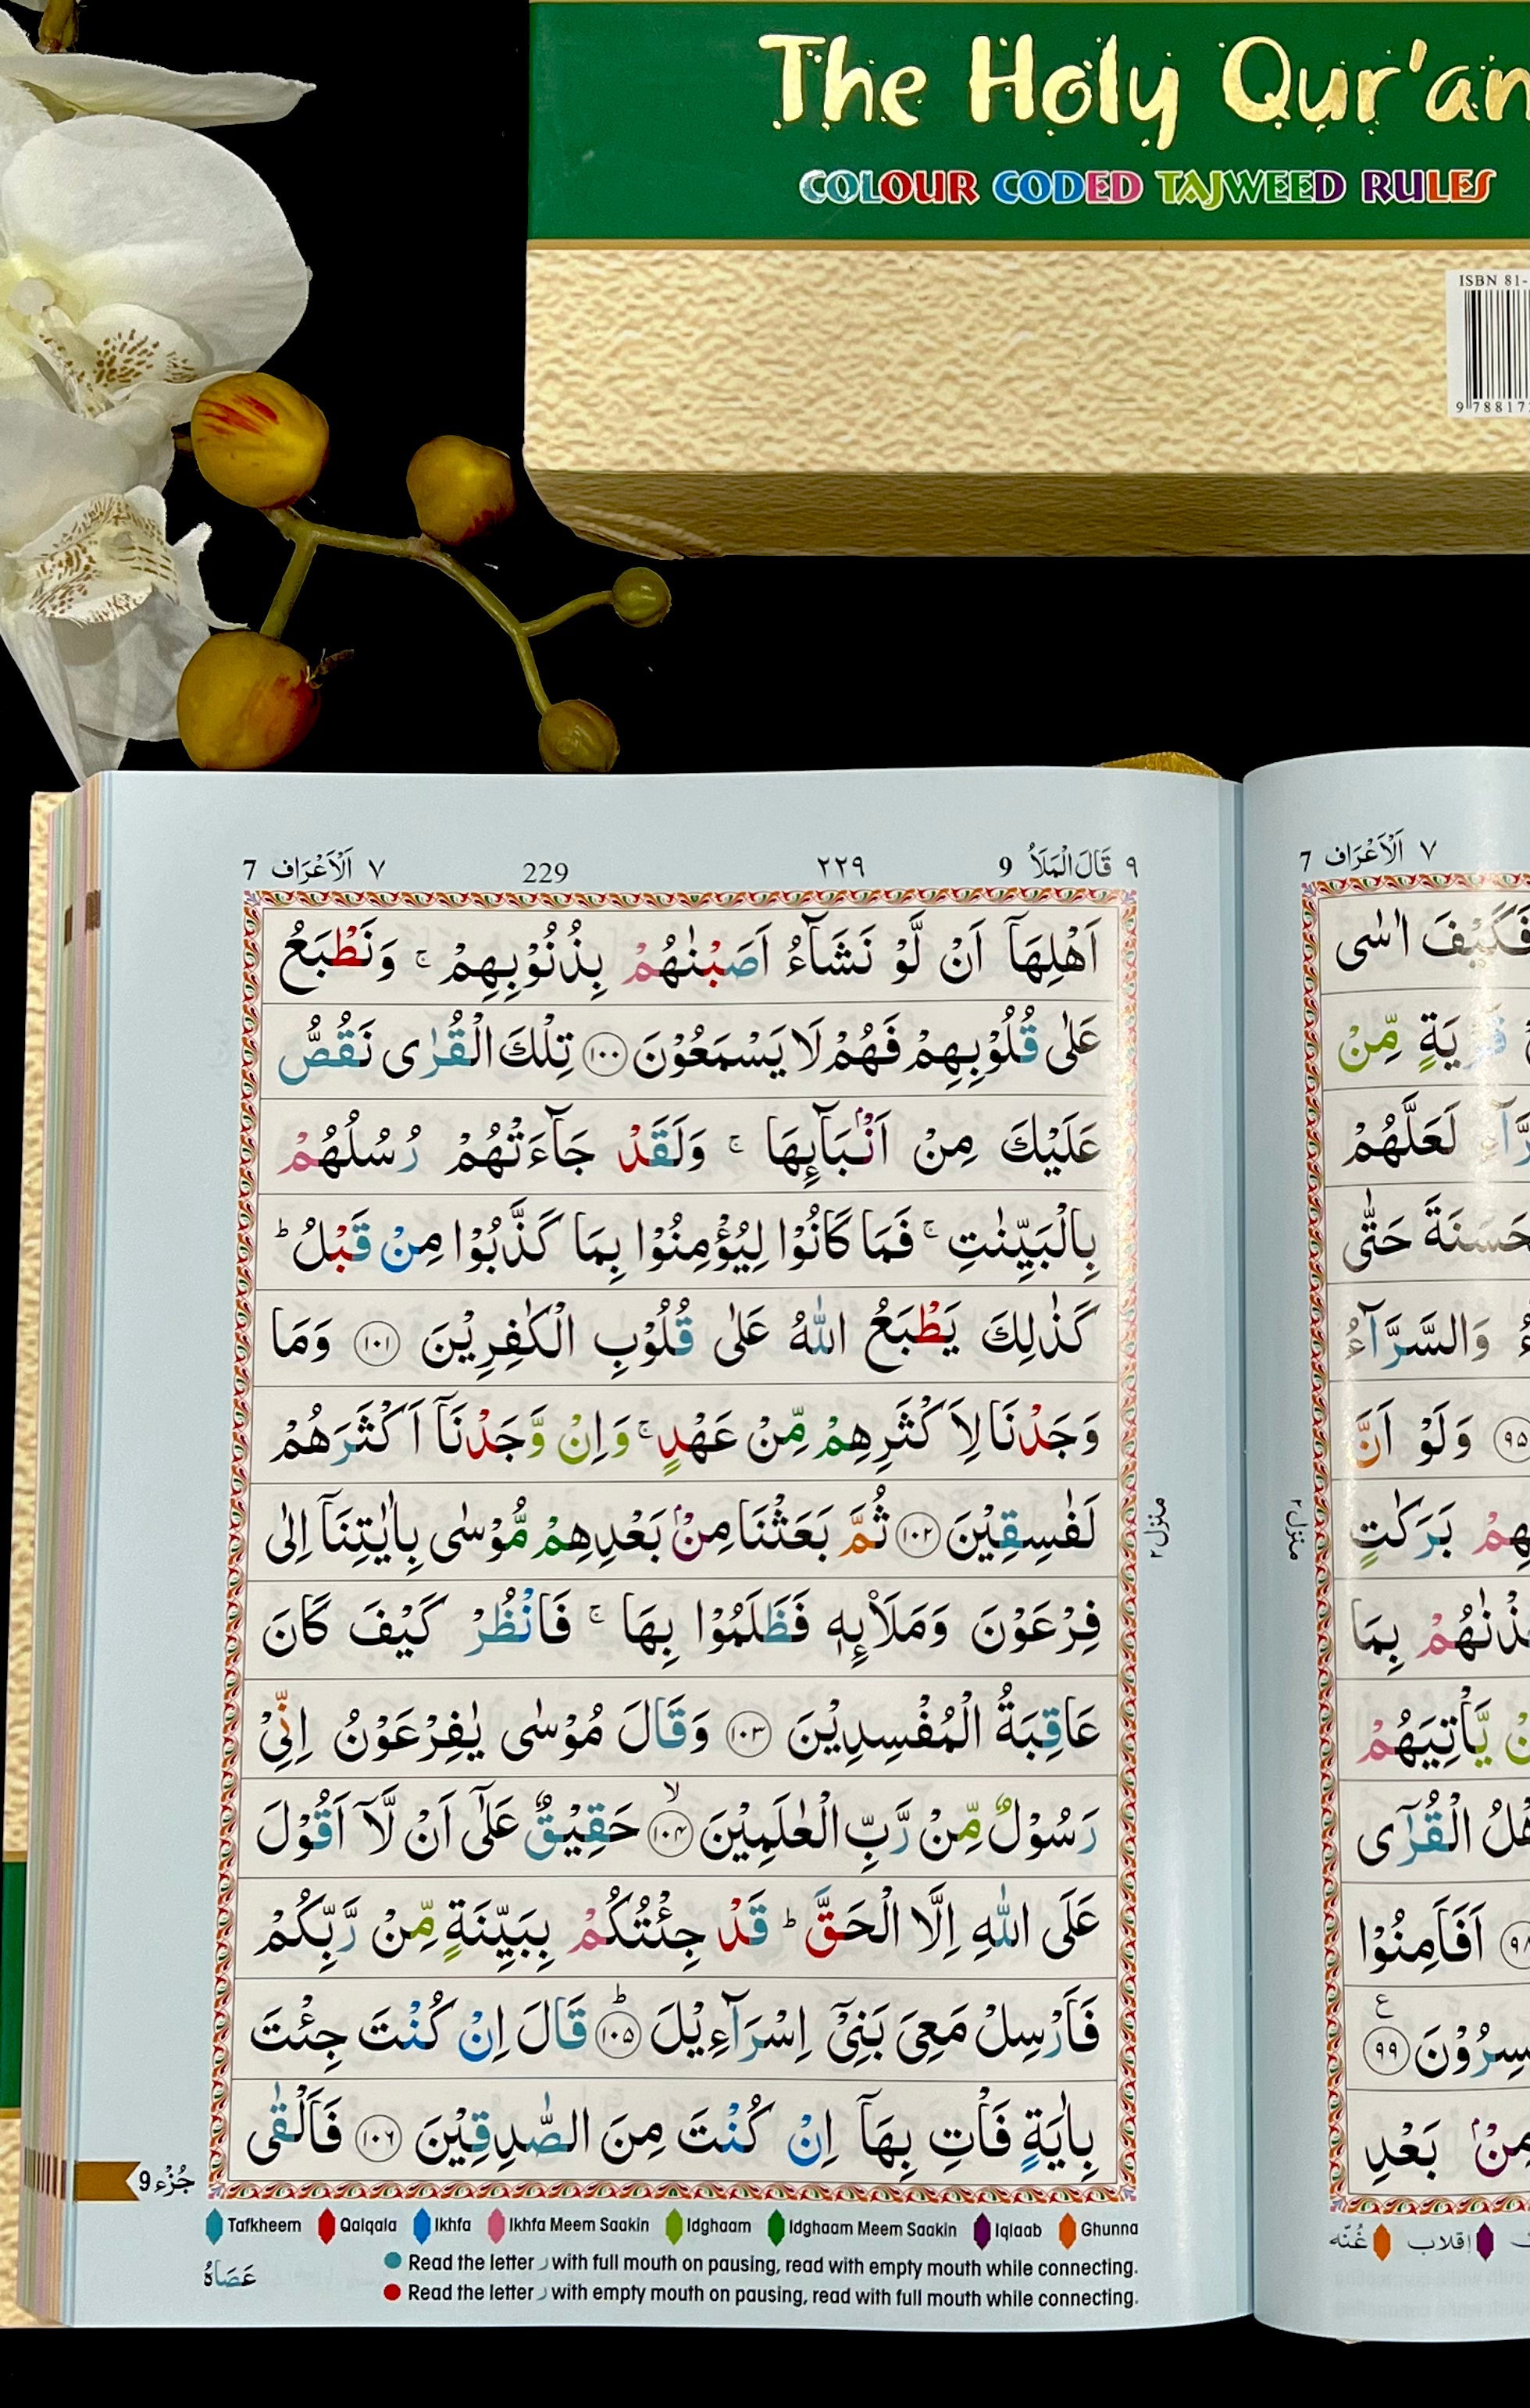 The Holy Qur'an
COLOUR CODED TAJWEED RULES
ISBN 81-
9 78817
٩ قَالَ الْمَلَاُ 9 ٢٢٩ 229 ٧ اَلْاَعْرَاف 7
اَهْلِهَاۤ اَنْ لَّوْ نَشَآءُ اَصَبْنٰهُمْ بِذُنُوْبِهِمْ ۚ وَنَطْبَعُ
عَلٰى قُلُوْبِهِمْ فَهُمْ لَا يَسْمَعُوْنَ ﴿١٠٠﴾ تِلْكَ الْقُرٰى نَقُصُّ
عَلَيْكَ مِنْ اَنْۢبَآئِهَا ۚ وَلَقَدْ جَآءَتْهُمْ رُسُلُهُمْ
بِالْبَيِّنٰتِ ۚ فَمَا كَانُوْا لِيُؤْمِنُوْا بِمَا كَذَّبُوْا مِنْ قَبْلُ ؕ
كَذٰلِكَ يَطْبَعُ اللّٰهُ عَلٰى قُلُوْبِ الْكٰفِرِيْنَ ﴿١٠١﴾ وَمَا
وَجَدْنَا لِاَكْثَرِهِمْ مِّنْ عَهْدٍ ۚ وَاِنْ وَّجَدْنَاۤ اَكْثَرَهُمْ
لَفٰسِقِيْنَ ﴿١٠٢﴾ ثُمَّ بَعَثْنَا مِنْۢ بَعْدِهِمْ مُّوْسٰى بِاٰيٰتِنَاۤ اِلٰى
فِرْعَوْنَ وَمَلَا۟ئِهٖ فَظَلَمُوْا بِهَا ۚ فَانْظُرْ كَيْفَ كَانَ
عَاقِبَةُ الْمُفْسِدِيْنَ ﴿١٠٣﴾ وَقَالَ مُوْسٰى يٰفِرْعَوْنُ اِنِّىْ
رَسُوْلٌ مِّنْ رَّبِّ الْعٰلَمِيْنَ ﴿١٠٤﴾ ۙ حَقِيْقٌ عَلٰۤى اَنْ لَّاۤ اَقُوْلَ
عَلَى اللّٰهِ اِلَّا الْحَقَّ ؕ قَدْ جِئْتُكُمْ بِبَيِّنَةٍ مِّنْ رَّبِّكُمْ
فَاَرْسِلْ مَعِىَ بَنِىْۤ اِسْرَآءِيْلَ ﴿١٠٥﴾ ؕ قَالَ اِنْ كُنْتَ جِئْتَ
بِاٰيَةٍ فَاْتِ بِهَاۤ اِنْ كُنْتَ مِنَ الصّٰدِقِيْنَ ﴿١٠٦﴾ فَاَلْقٰى
منزل ٢
جُزْء 9
Tafkheem Qalqala Ikhfa Ikhfa Meem Saakin Idghaam Idghaam Meem Saakin Iqlaab Ghunna
Read the letter ر with full mouth on pausing, read with empty mouth while connecting.
Read the letter ر with empty mouth on pausing, read with full mouth while connecting.
عَصَاهُ
٧ اَلْاَعْرَاف 7
فَكَيْفَ اٰسٰى
قَرْيَةٍ مِّنْ
لَعَلَّهُمْ
حَسَنَةَ حَتّٰى
وَالسَّرَّآءُ
﴿٩٥﴾ وَلَوْ اَنَّ
بَرَكٰتٍ
بِمَا
يَّاْتِيَهُمْ
الْقُرٰٓى
﴿٩٨﴾ اَفَاَمِنُوْا
﴿٩٩﴾ ع
مِنْۢ بَعْدِ
منزل ٢
اِقلاب غُنّه